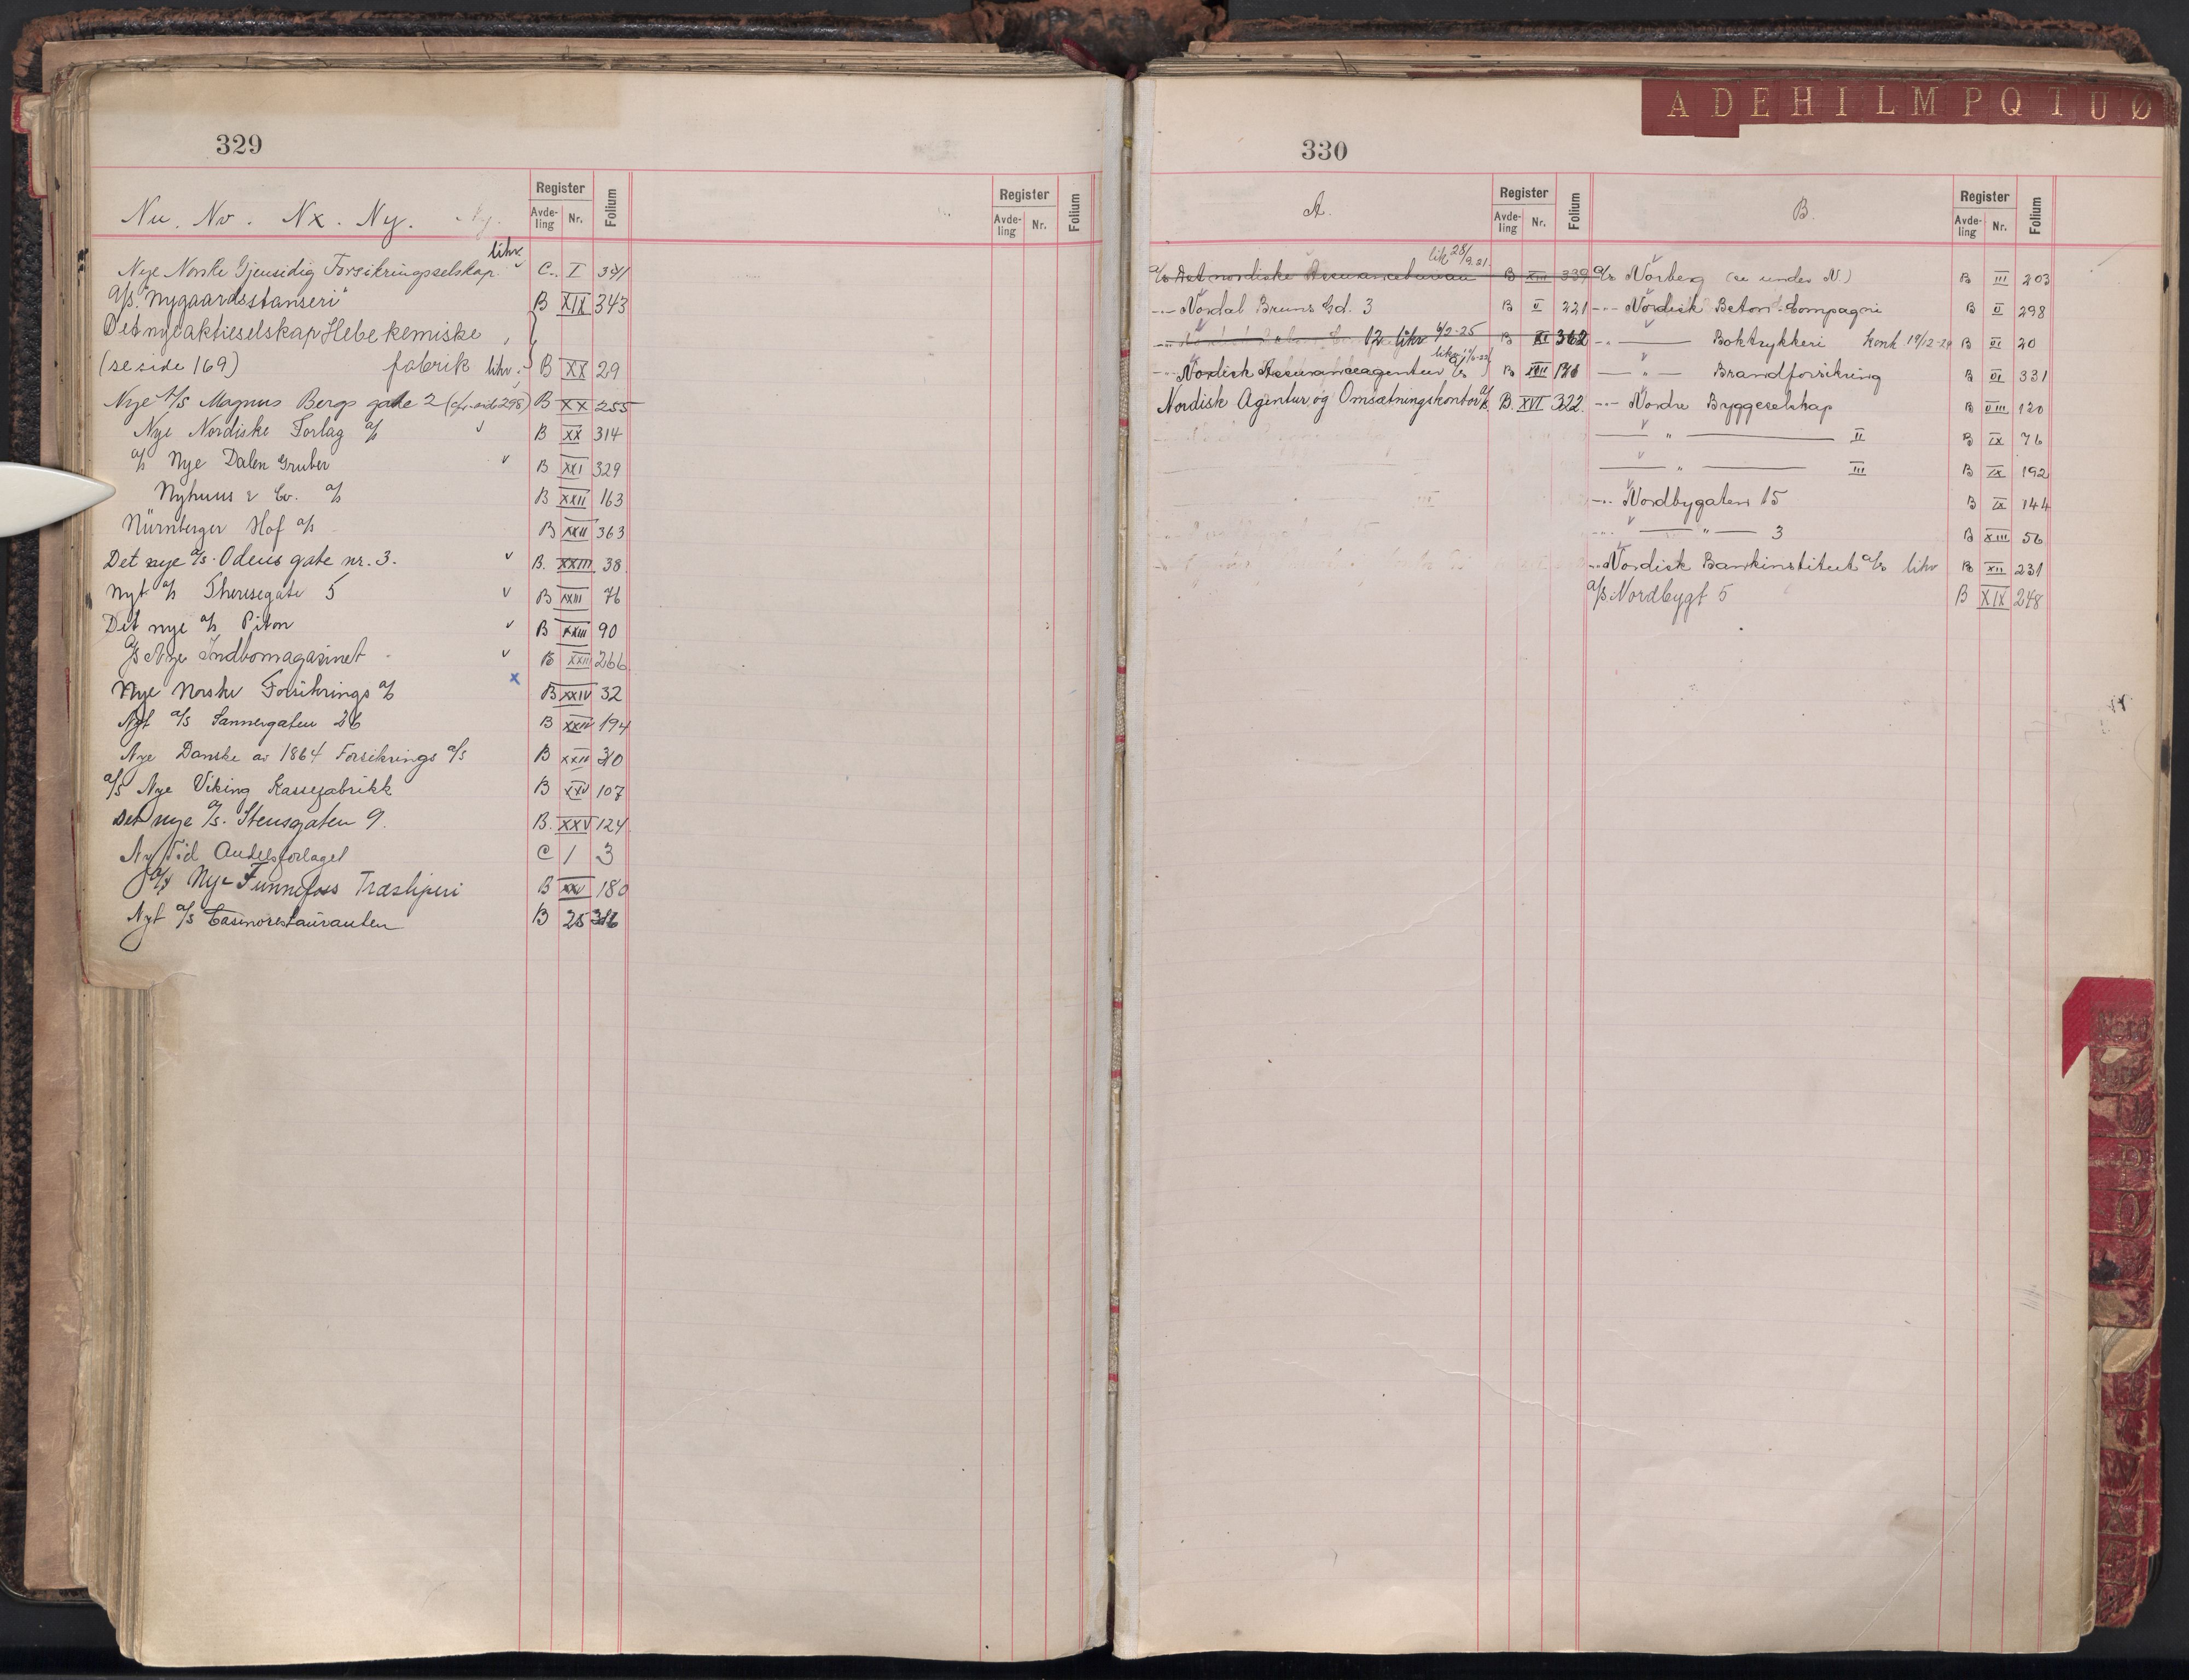 329
Nu. Nv. Nx. Ny.
Register
Avde-ling Nr. Folium
Register
Avde-ling Nr. Folium
Nye Norske Gjensidig Forsikringsselskap. likv. C. I 341
A/S. "Nygaardsstanseri" B XIX 343
Det nye aktieselskap Hebe kemiske
(se side 169) fabrik likv. B XX 29
Nye A/S Magnus Bergs gate 2 (cfr. side 298) B XX 255
Nye Nordiske Forlag a/s v B XX 314
a/s Nye Dalen Gruber v B XXI 329
Nyhuus & Co. a/s B XXII 163
Nürnberger Hof a/s B XXII 363
Det nye a/s. Odens gate nr. 3. v B. XXIII. 38
Nyt a/s Theresegate 5 v B XXIII 76
Det nye a/s Piton v B XXIII 90
a/s Nye Indbomagasinet v B XXIII 266
Nye Norske Forsikrings a/s x B XXIV 32
Nyt a/s Sannergaten 26 B XXIV 194
Nye Danske av 1864 Forsikrings a/s B 310
a/s Nye Viking Kassefabrikk B XXV 107
Det nye a/s. Stensgaten 9. B. XXV 124
Ny Tid Andelsforlaget C 1 3
a/s Nye Funnefoss Træsliperi B XXV 180
Nyt a/s Casinorestauranten B 25 316
330
A D E H I L M P Q T U Ø
A.
Register
Avde-ling Nr. Folium
B.
Register
Avde-ling Nr. Folium
lik 28/9.21.
a/s Det nordiske Assurancebureau B XIII 339
-"- Nordal Bruns Gd. 3 B II 221
12 likv 6/2-25 B XI 362
-"- Nordisk Assuranceagentur a/s likv. B XVII
Nordisk Agentur og Omsætningskontor a/s B. XVI 322.
a/s Norberg (se under N.) B III 203
-"- Nordisk Beton-Compagni B II 298
-"- Boktrykkeri konk 19/12-29 B VI 20
-"- Brandforsikring B VI 331
-"- Nordre Byggeselskap B VIII 120
-"- II B IX 76
-"- III B IX 192
-"- Nordbygaten 15 B IX 144
-"- 3 B XIII 56
-"- Nordisk Bankinstitut a/s likv B XII 231
a/s Nordbygt 5 B XIX 248